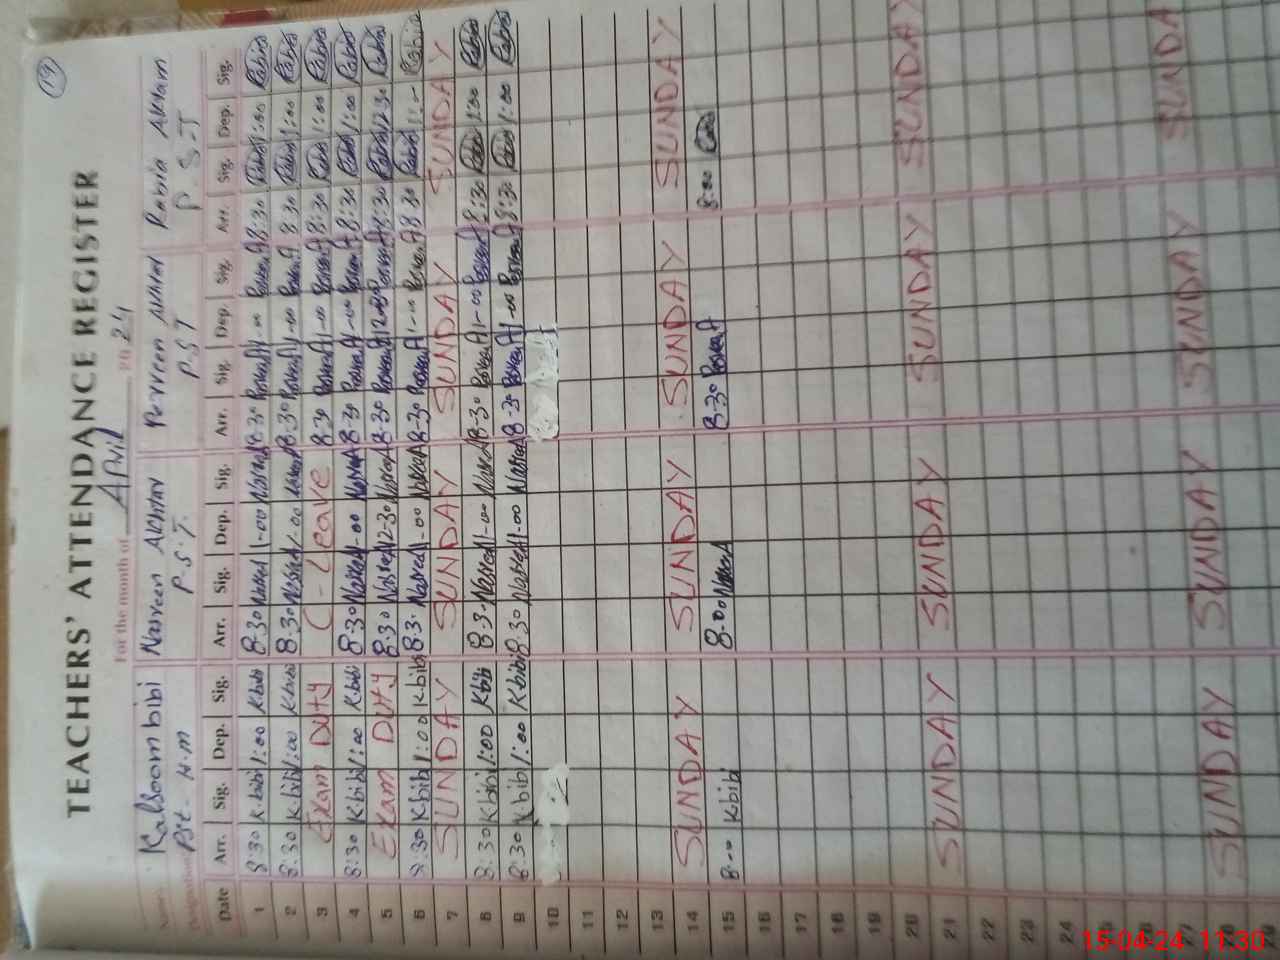 19
TEACHERS' ATTENDANCE REGISTER
For the month of April 2024
Name Kalsoom bibi Nasreen Akhtar Perveen Akhtar Rabia Akram
Designation Pst - H.m P.S.T. P.S T P.S.T
Date Arr. Sig. Dep. Sig. Arr. Sig. Dep. Sig. Arr. Sig. Dep Sig. Arr. Sig. Dep. Sig.
1 8:30 K.bibi 1:00 K.bibi 8.30 1-00 8.30 1-00 8:30 Rabia 1:00 Rabia
2 8:30 K.bibi 1:00 K.bibi 8.30 1-00 8.30 1-00 8:30 Rabia 1:00 Rabia
3 Exam Duty C - Leave 8.30 1-00 8:30 Rabia 1:00 Rabia
4 8:30 K.bibi 1:00 K.bibi 8.30 1-00 8.30 1-00 8:30 Rabia 1:00 Rabia
5 Exam Duty 8.30 12-30 8.30 12-30 8:30 Rabia 12:30 Rabia
6 8:30 K.bibi 1:00 K.bibi 8.3. 1-00 8.30 1-00 8:30 Rabia 1:- Rabia
7 SUNDAY SUNDAY SUNDAY SUNDAY
8 8:30 K.bibi 1:00 K.bibi 8.3. 1-00 8-30 1-00 8:30 Rabia 1:00 Rabia
9 8:30 K.bibi 1:00 K.bibi 8.30 1-00 8-30 1-00 8:30 Rabia 1:00 Rabia
10
11
12
13
14 SUNDAY SUNDAY SUNDAY SUNDAY
15 8:00 K.bibi 8.00 8.30 8:00 Rabia
16
17
18
19
20
21 SUNDAY SUNDAY SUNDAY SUNDAY
22
23
24
25
26
27
28 SUNDAY SUNDAY SUNDAY SUNDAY
29
15-04-24 11:30